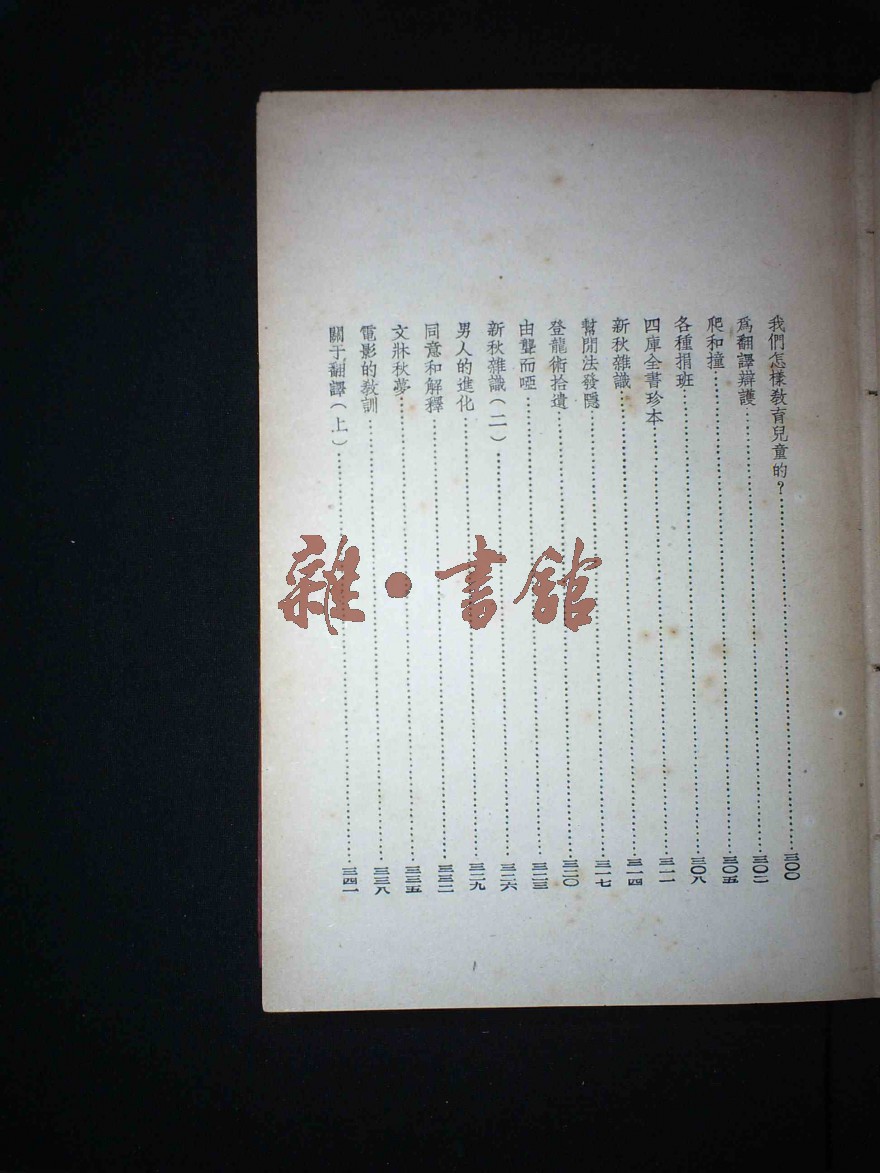 我們怎樣敎育兒童的？⋯⋯三〇〇
爲翻譯辯護⋯⋯三〇二
爬和撞⋯⋯三〇五
各種捐班⋯⋯三〇八
四庫全書珍本⋯⋯三一一
新秋雜識⋯⋯三一四
幫閒法發隱⋯⋯三一七
登龍術拾遺⋯⋯三二〇
由聾而啞⋯⋯三二三
新秋雜識（二）⋯⋯三二六
男人的進化⋯⋯三二九
同意和解釋⋯⋯三三二
文牀秋夢⋯⋯三三五
電影的敎訓⋯⋯三三八
關于翻譯（上）⋯⋯三四一
雜·書館